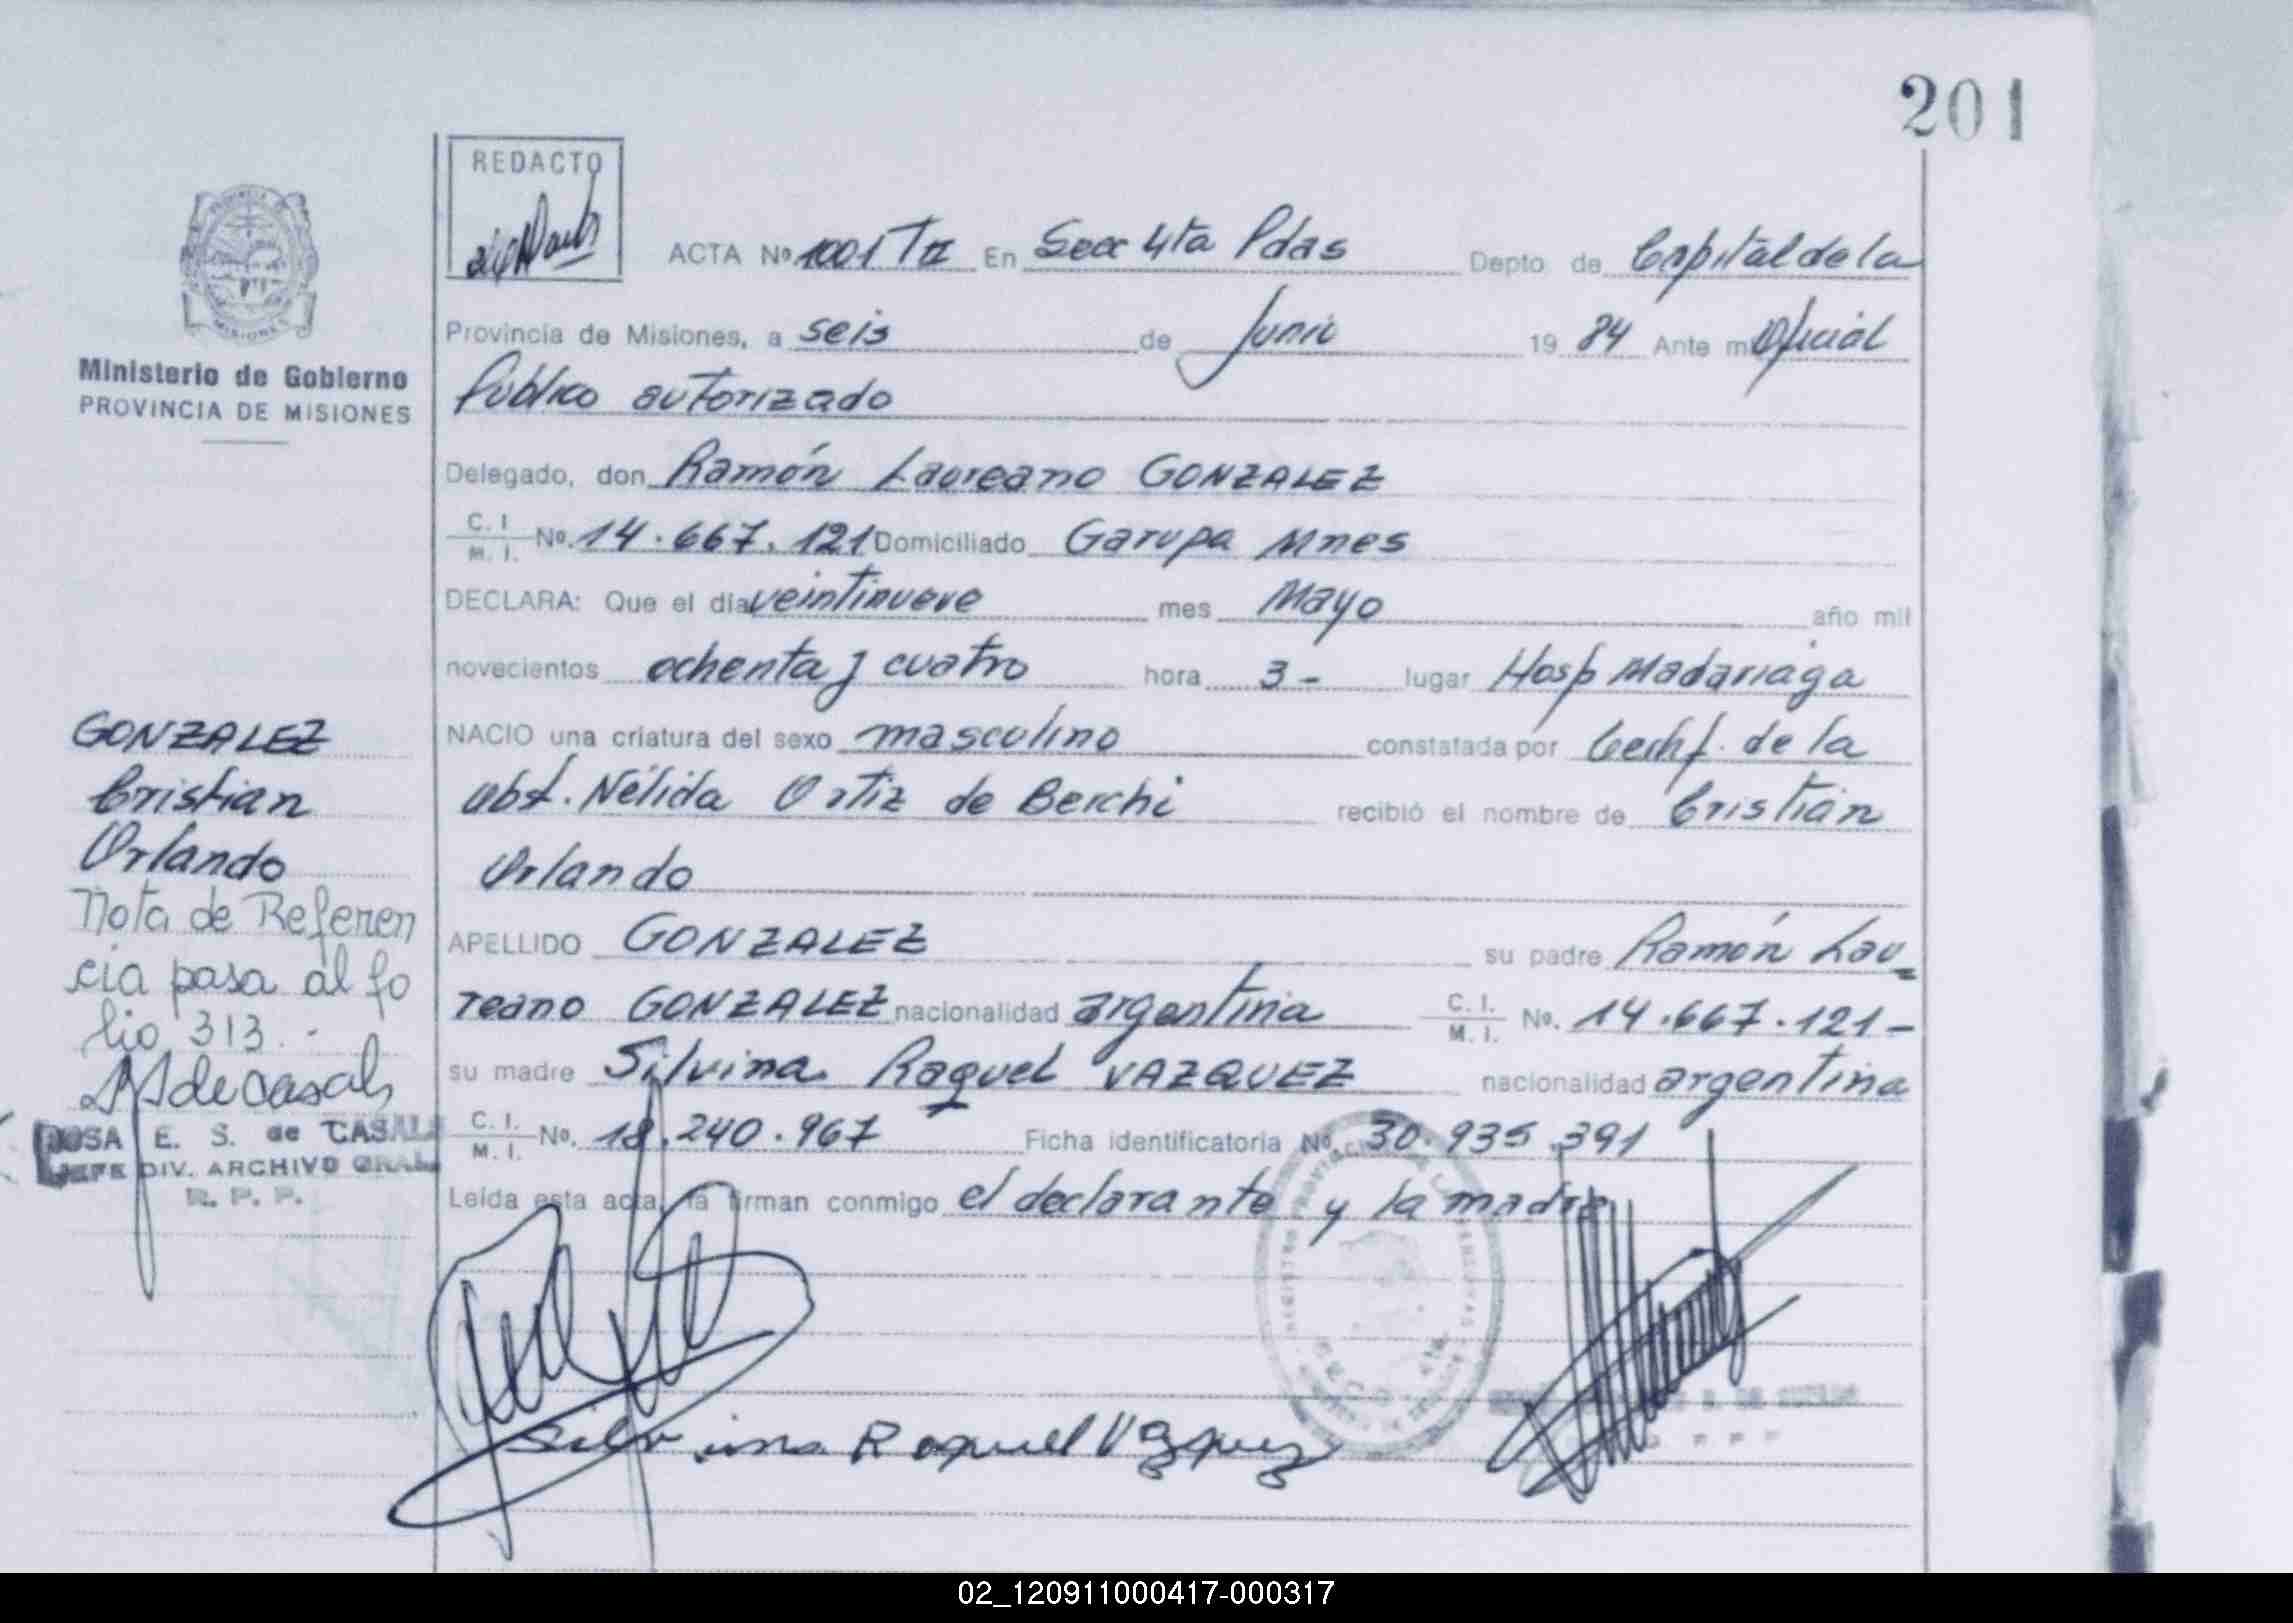 201
REDACTO
ACTA Nº 1001 T II En Secc 4ta Pdas Depto de Capital de la
Provincia de Misiones, a seis de Junio 19 84 Ante mi Oficial
Público autorizado
Delegado, don Ramón Laureano GONZALEZ
C. I. / M. I. Nº. 14.667.121 Domiciliado Garupa Mnes
DECLARA: Que el día veintinueve mes Mayo año mil
novecientos ochenta y cuatro hora 3 - lugar Hosp Madariaga
NACIO una criatura del sexo masculino constatada por Certif. de la
obst. Nélida Ortiz de Berchi recibió el nombre de Cristian
Orlando
APELLIDO GONZALEZ su padre Ramón Lau
reano GONZALEZ nacionalidad argentina C. I. / M. I. Nº. 14.667.121-
su madre Silvina Raquel VAZQUEZ nacionalidad argentina
C. I. / M. I. Nº. 18.240.967 Ficha identificatoria Nº. 30.935.391
Leída esta acta, la firman conmigo el declarante y la madre
Silvina Raquel Vazquez
PROVINCIA DE MISIONES
Ministerio de Gobierno
PROVINCIA DE MISIONES
GONZALEZ
Cristian
Orlando
Nota de Referen
cia pasa al fo
lio 313.-
de Casals
ROSA E. S. de CASALS
JEFE DIV. ARCHIVO GRAL.
R. P. P.
02_120911000417-000317